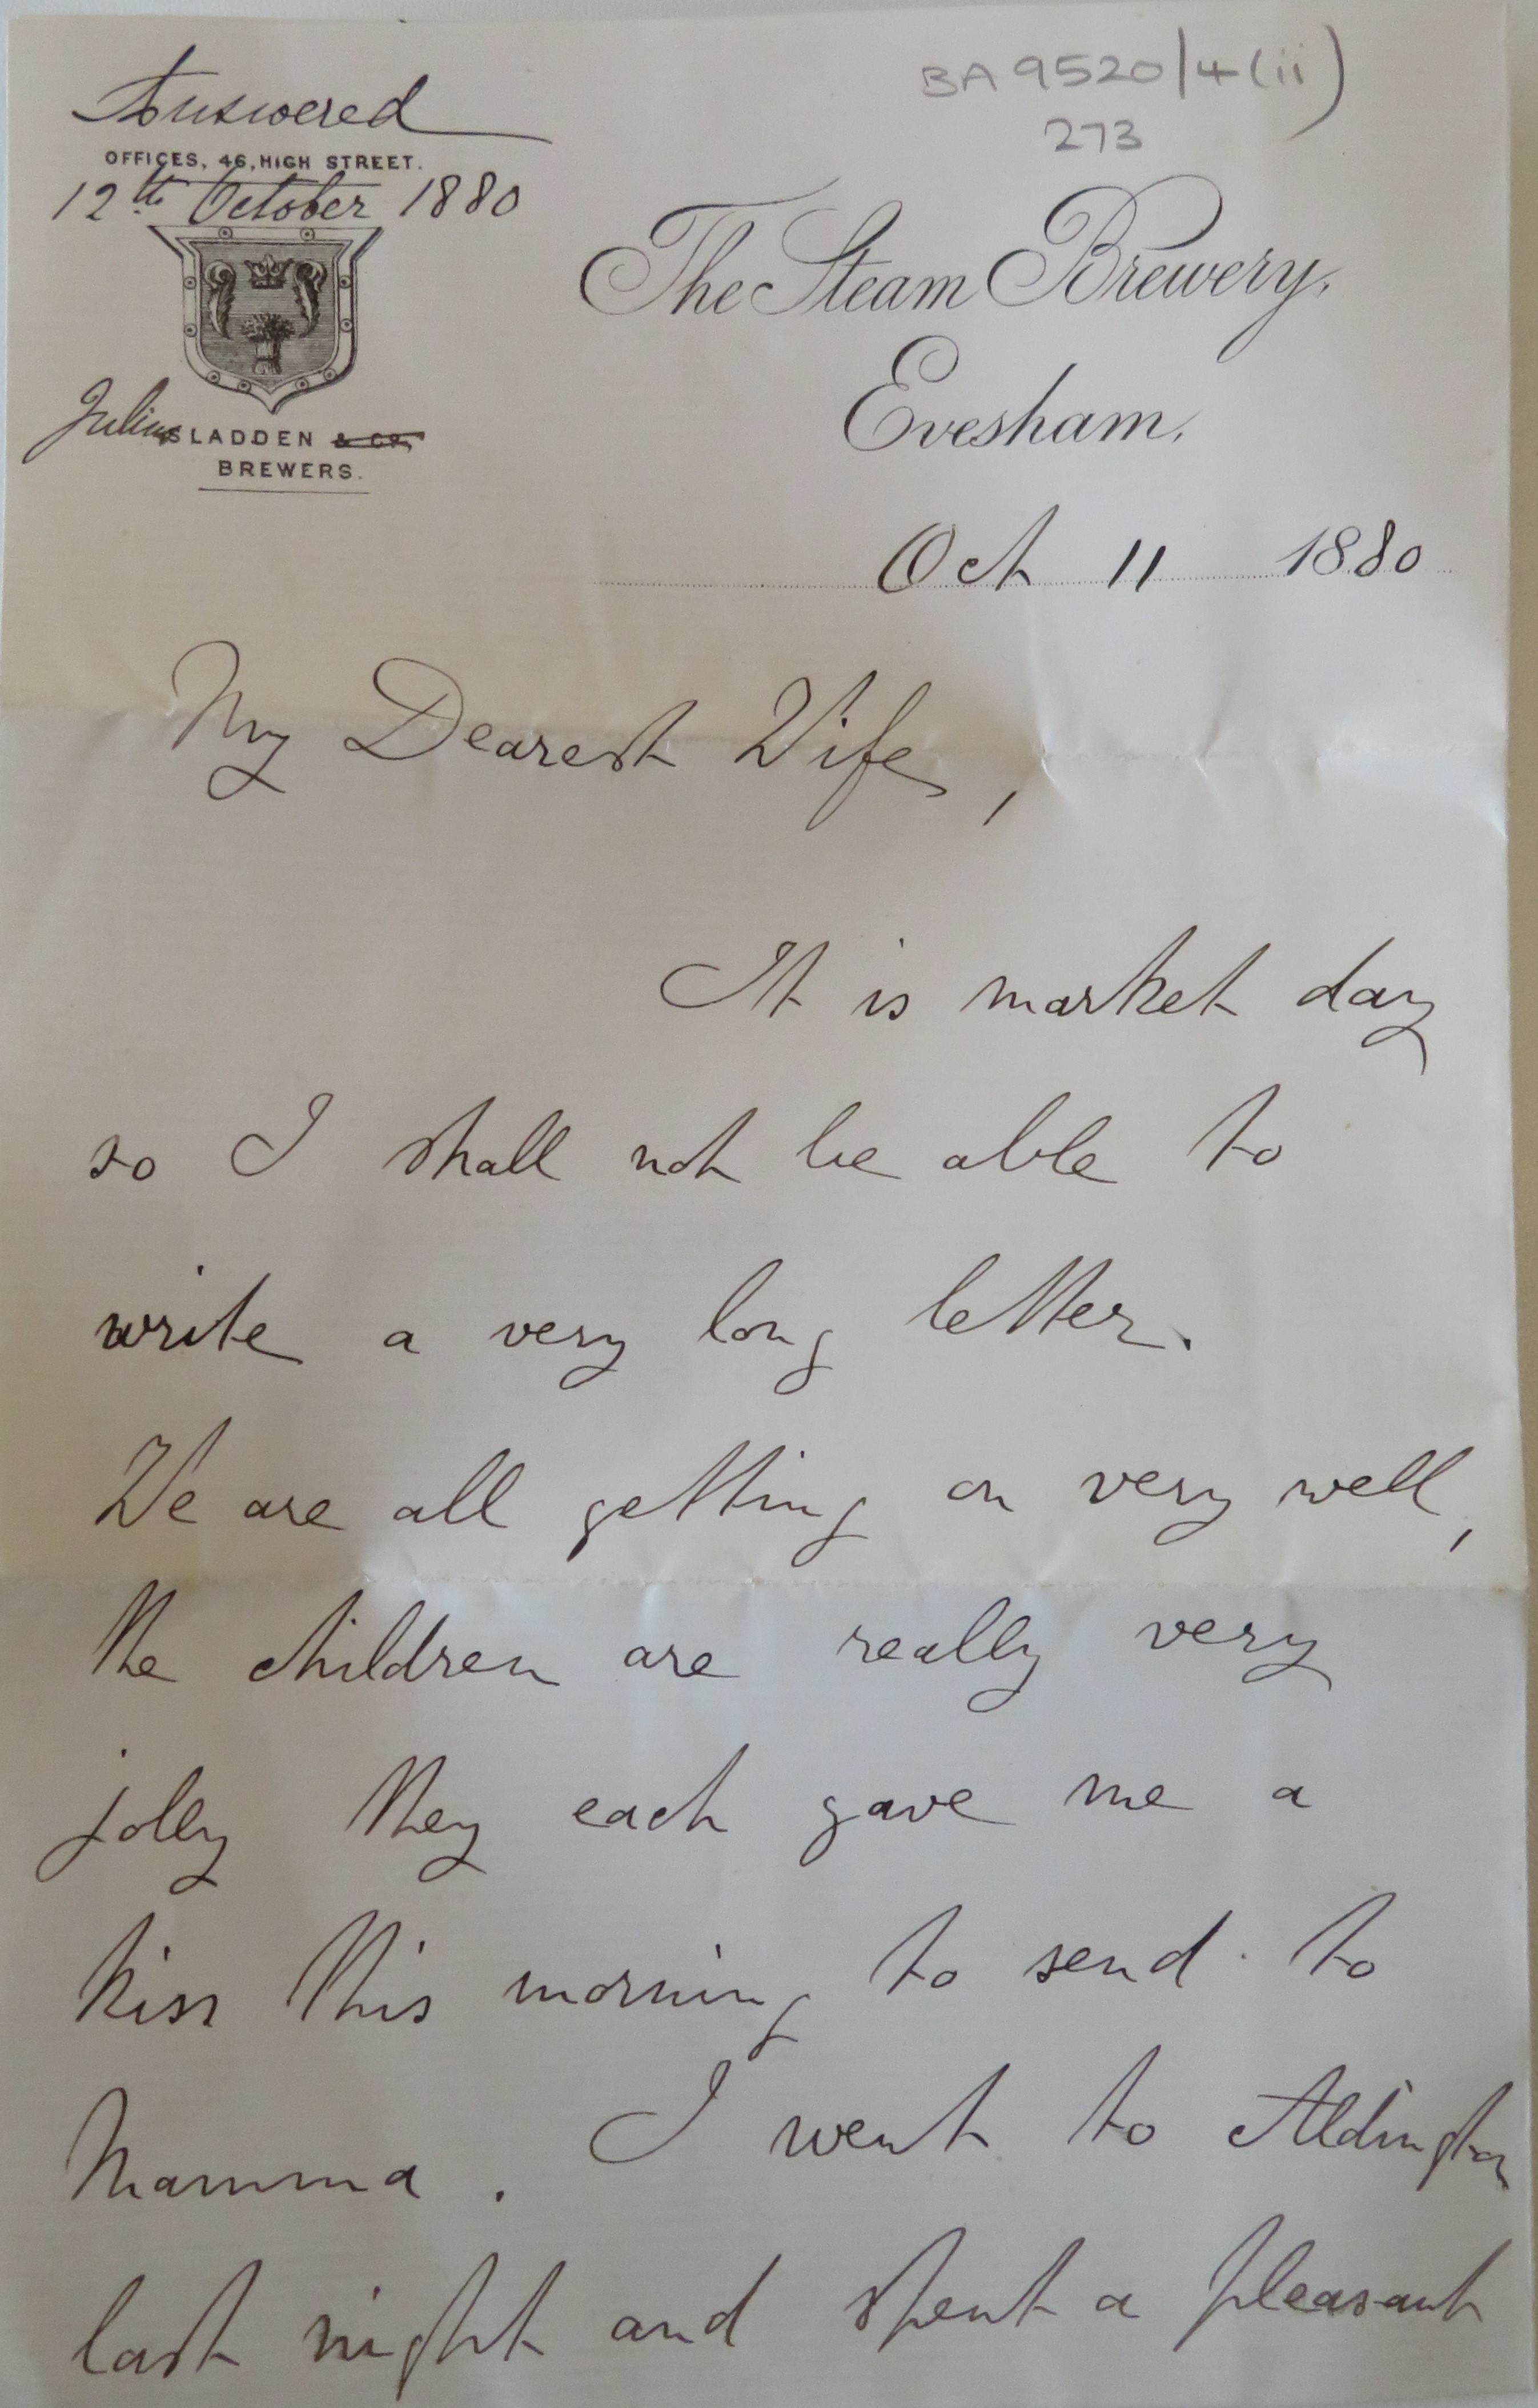 BA 9520/4(ii)
273
Answered
OFFICES, 46, HIGH STREET.
12th October 1880
The Steam Brewery,
Evesham,
Julius SLADDEN & Co,
BREWERS.
Oct 11 1880
My Dearest Wife,
It is market day
so I shall not be able to
write a very long letter.
We are all getting on very well,
the children are really very
jolly they each gave me a
kiss this morning to send to
Mamma. I went to Aldington
last night and spent a pleasant